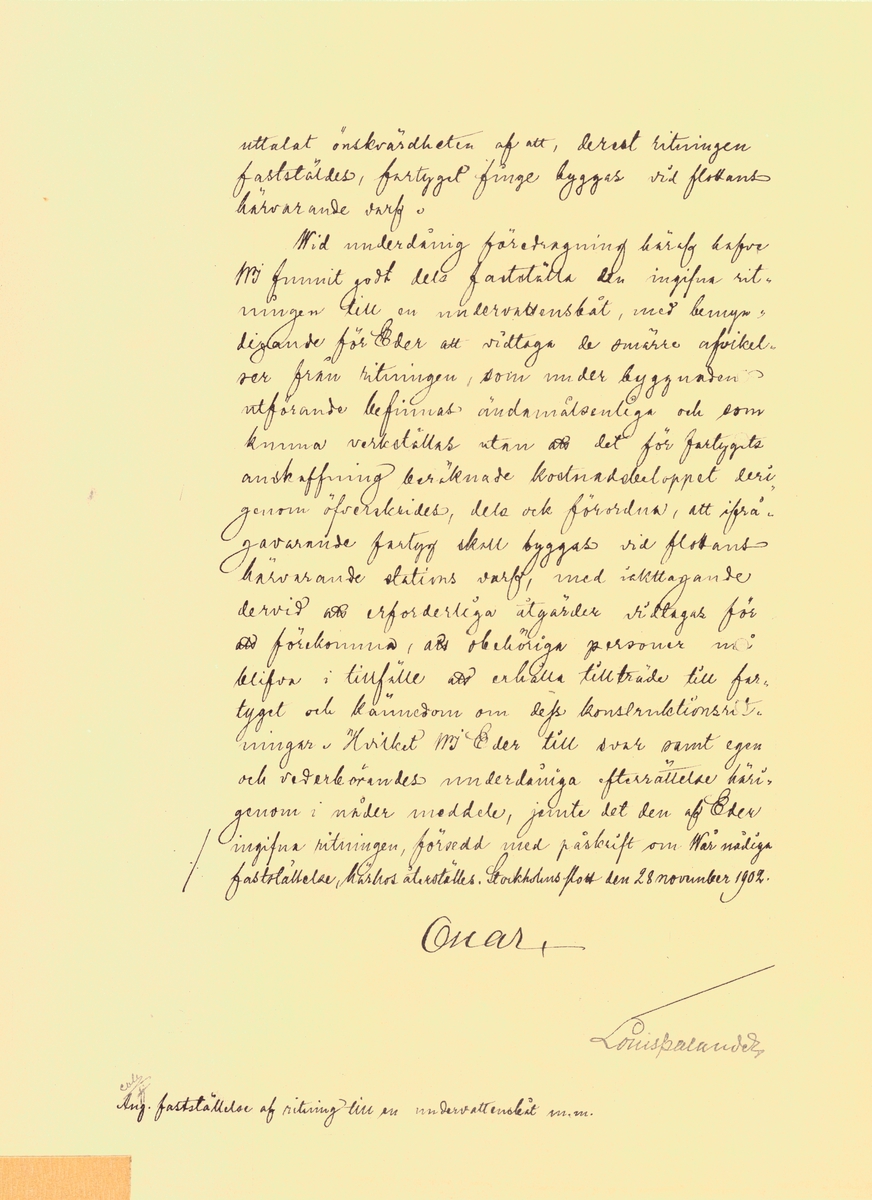 uttalat önskvärdheten af att, derest ritningen
faststäldes, fartyget finge byggas vid flottans
härvarande varf.
Wid underdånig föredragning häraf hafve
Wj funnit godt dels fastställa den ingifna rit-
ningen till en undervattensbåt, med bemyn-
digande för Eder att vidtaga de smärre afvikel-
ser från ritningen, som under byggnadens
utförande befinnas ändamålsenliga och som
kunna verkställas utan att det för fartygets
anskaffning beräknade kostnadsbeloppet deri-
genom öfverskrides, dels ock förordna, att ifrå-
gavarande fartyg skall byggas vid flottans
härvarande stations varf, med iakttagande
dervid att erforderliga åtgärder vidtagas för
att förekomma, att obehöriga personer må
blifva i tillfälle att erhålla tillträde till far-
tyget och kännedom om dess konstruktionsrit-
ningar. Hvilket Wj Eder till svar samt egen
och vederbörandes underdåniga efterrättelse häri-
genom i nåder meddele, jemte det den af Eder
ingifna ritningen, försedd med påskrift om Wår nådiga
fastställelse, härhos återställes. Stockholms slott den 28 november 1902.
Oscar
Louis Palander
Ang. fastställelse af ritning till en undervattensbåt m.m.